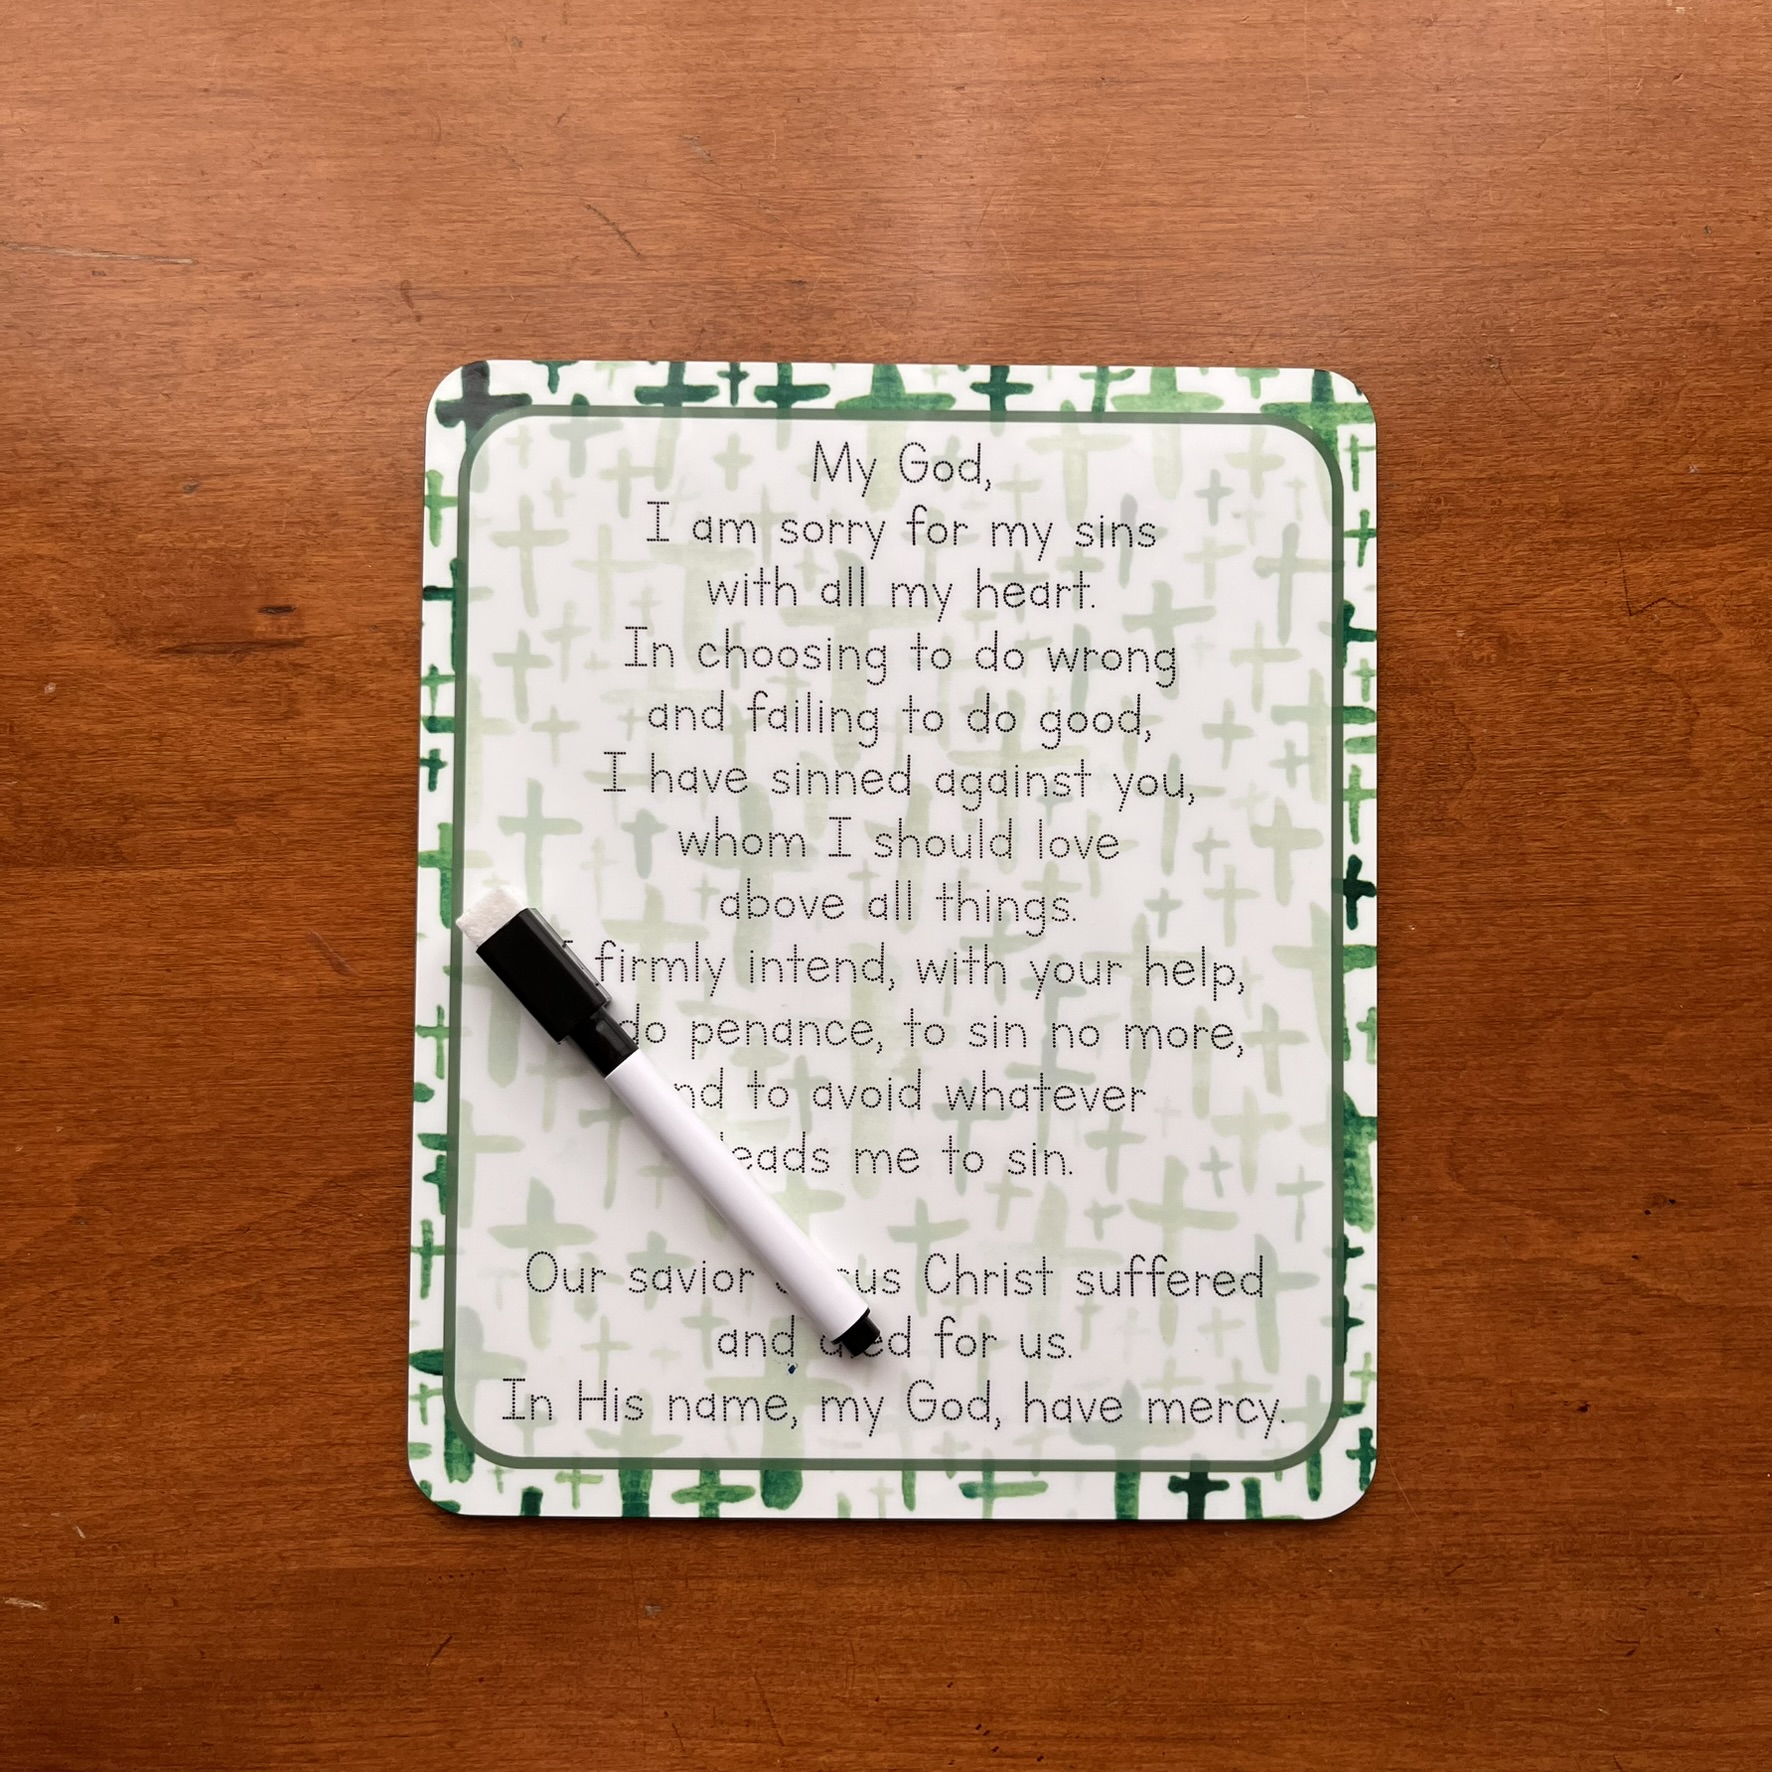 My God,
I am sorry for my sins
with all my heart.
In choosing to do wrong
and failing to do good,
I have sinned against you,
whom I should love
above all things.
firmly intend, with your help,
do penance, to sin no more,
to avoid whatever
me to sin.
Our savior Christ suffered
and for us.
In His name, my God, have mercy.